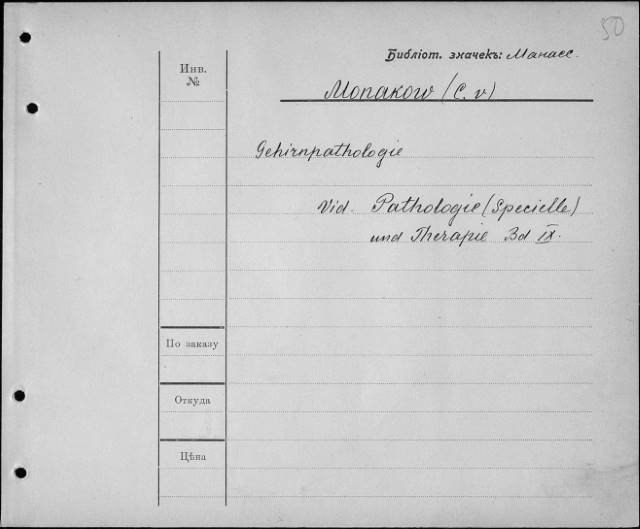 50
Библіот. значекъ: Манасс.
Инв.
№
Monakow (C. v)
Gehirnpathologie
Vid. Pathologie (Specielle)
und Therapie Bd IX.
По заказу
Откуда
Цѣна